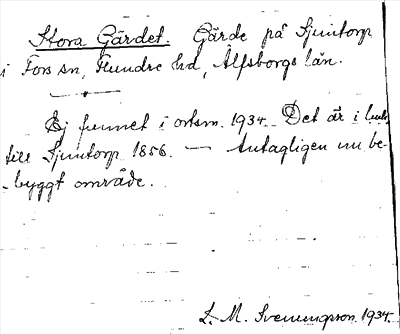 Stora Gärdet. Gärde på Sjuntorp
i Fors sn, Flundre hd, Älfsborgs län.
Ej funnet i ortsn. 1934. Det är i
till Sjuntorp 1856. — Antagligen nu be-
byggt område.
L. M. Svenungsson. 1934.